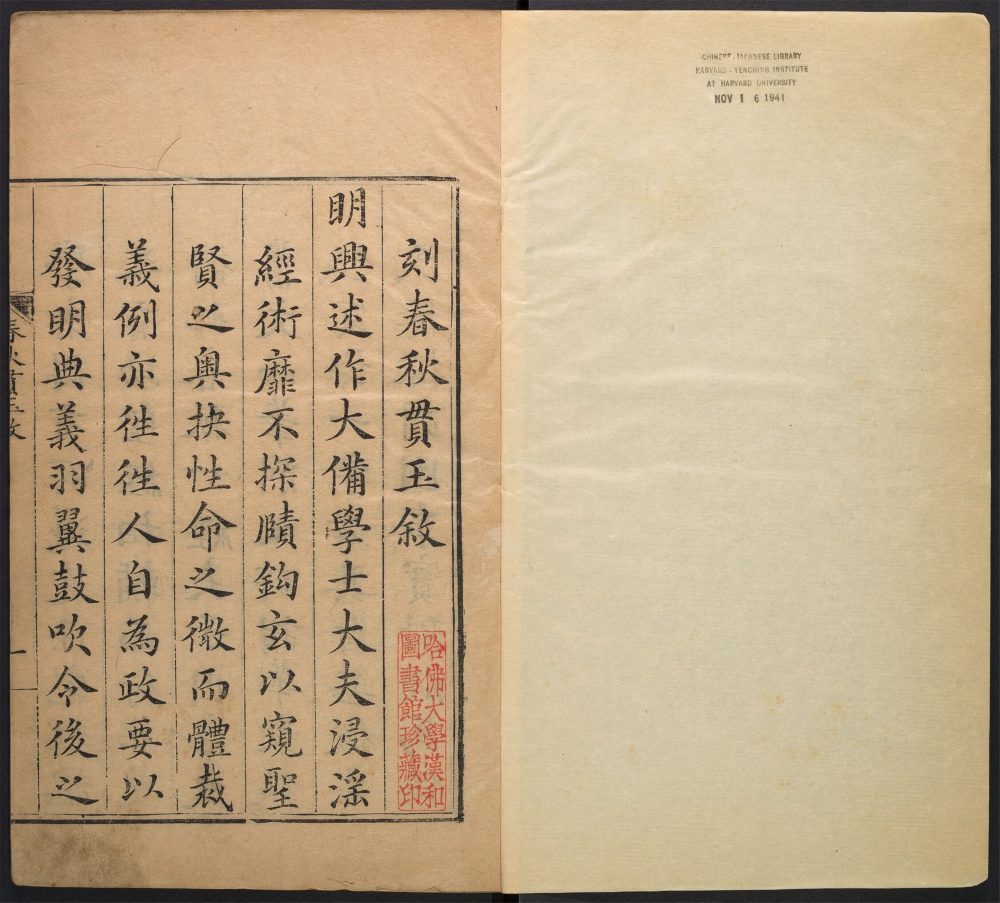 CHINESE-JAPANESE LIBRARY
HARVARD-YENCHING INSTITUTE
AT HARVARD UNIVERSITY
NOV 16 1941
刻春秋貫玉敘
哈佛大學漢和
圖書館珍藏印
明興述作大備學士大夫浸滛
經術靡不探賾鈎玄以窺聖
賢之奥抉性命之微而體裁
義例亦徃徃人自為政要以
發明典義羽翼鼓吹令後之
春秋貫玉敘
一